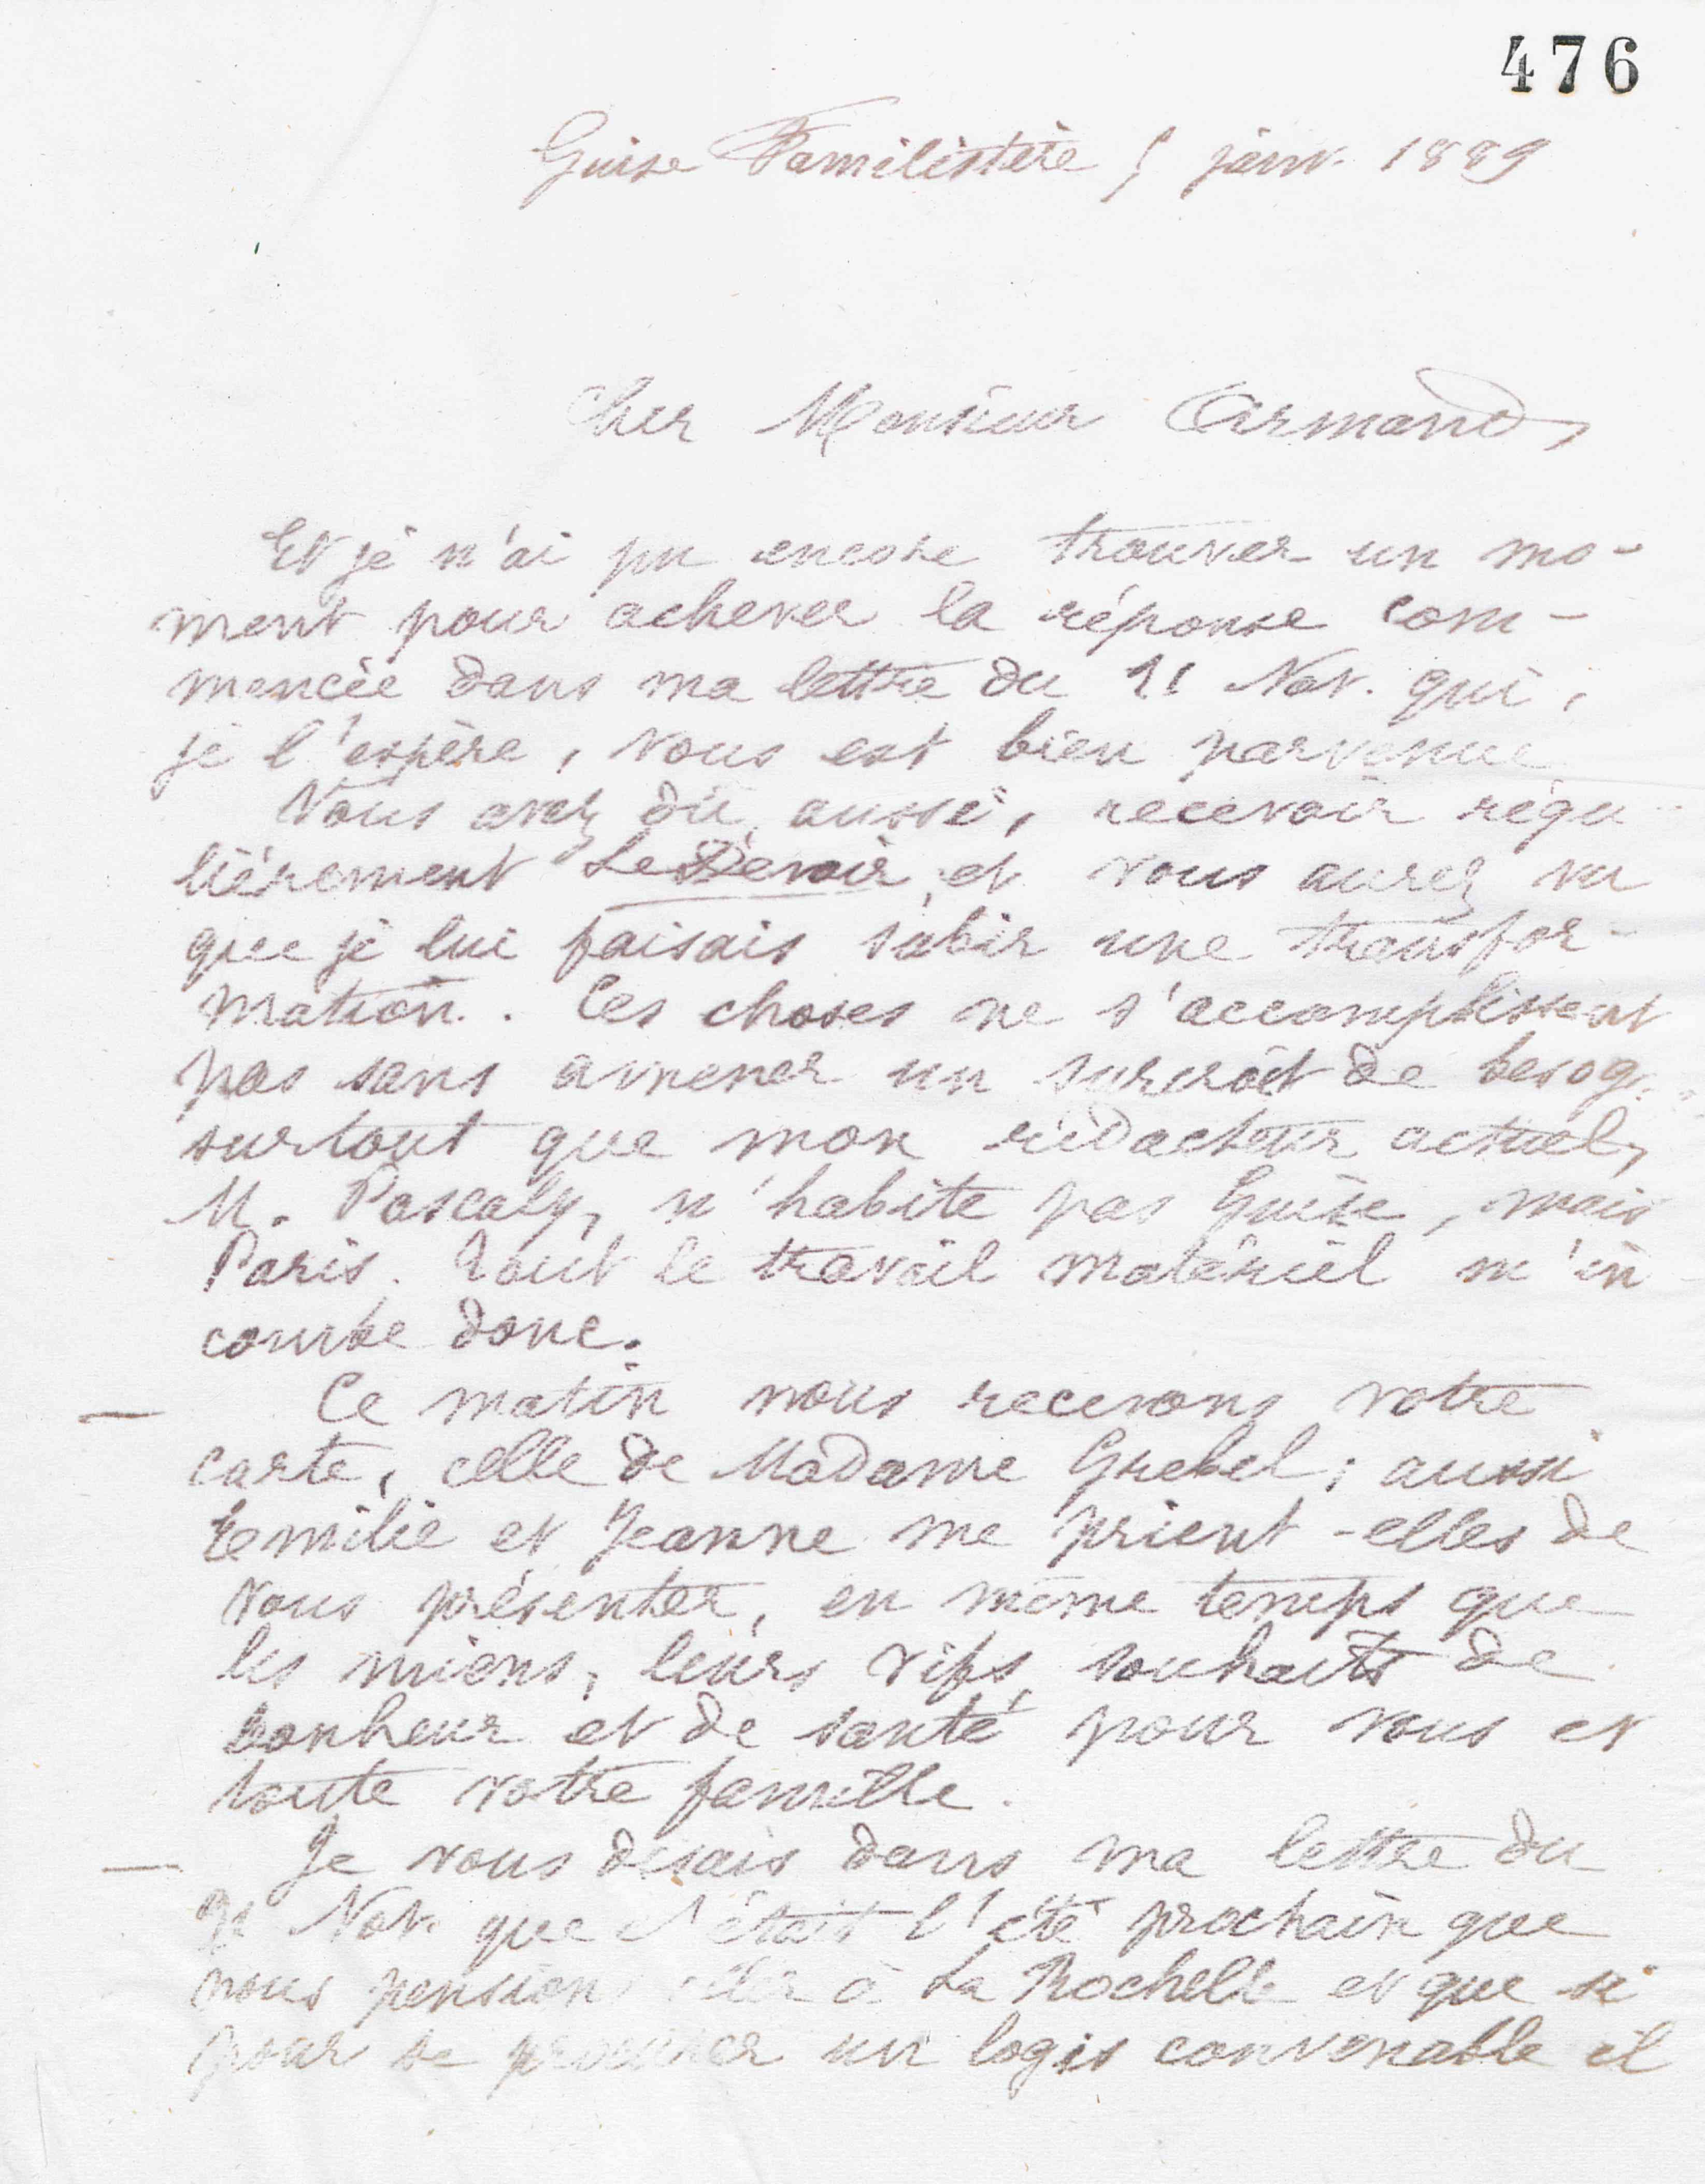 476
Guise Familistère 5 janv. 1889
Cher Monsieur Armand,
Et je n'ai pu encore trouver un mo-
ment pour achever la réponse com-
mencée dans ma lettre du 21 Nov. qui,
je l'espère, vous est bien parvenue
Vous avez dû, aussi, recevoir régu-
lièrement Le Devoir et vous aurez vu
que je lui faisais subir une transfor-
mation. Ces choses ne s'accomplissent
pas sans amener un surcroît de besog
surtout que mon rédacteur actuel,
M. Pascaly, n'habite pas Guise, mais
Paris. Tout le travail matériel m'in-
combe donc.
— Ce matin nous recevons votre
carte, celle de Madame Grebel; aussi
Emilie et Jeanne me prient-elles de
vous présenter, en même temps que
les miens, leurs vifs souhaits de
bonheur et de santé pour vous et
toute votre famille.
— Je vous disais dans ma lettre du
21 Nov. que c'était l'été prochain que
nous pension à La Rochelle et que si
pour se procurer un logis convenable il